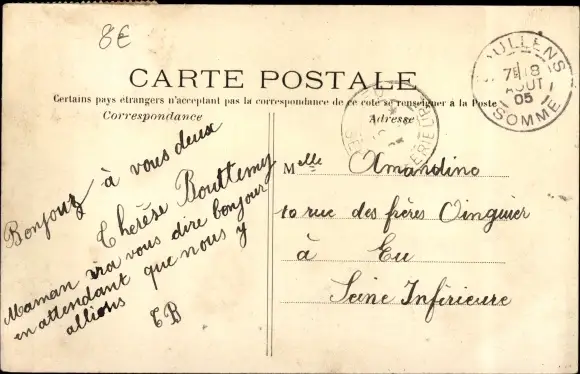 8€
CARTE POSTALE
Certains pays étrangers n'acceptant pas la correspondance de ce coté se renseigner à la Poste
Correspondance
Adresse
DOULLENS
7E 18
AOUT
05
SOMME
Bonjour à vous deux
Thérèse Bouttemy
Maman ira vous dire bonjour
en attendant que nous y
allions
TB
Melle Amandine
10 rue des frères Oinguier
à Eu
Seine Inférieure